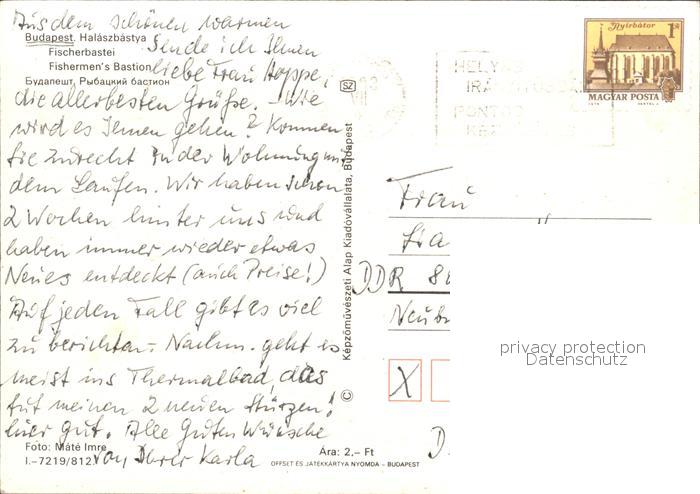 Aus dem schönen warmen
Budapest. Halászbástya
Sende ich Ihnen
Fischerbastei
Fishermen's Bastion
liebe Frau Hoppe,
Будапешт, Рыбацкий бастион
die allerbesten Grüße. Wie
wird es Ihnen gehen? Kommen
Sie zurecht in der Wohnung mit
dem Laufen. Wir haben schon
2 Wochen hinter uns und
haben immer wieder etwas
Neues entdeckt (auch Preise!)
Auf jeden Fall gibt es viel
zu berichten. Nachm. geht es
meist ins Thermalbad, das
tut meinen 2 neuen
hier gut. Alle Guten Wünsche
Foto: Máté Imre
I.-7219/812
von Ihrer Karla
Ára: 2,– Ft
OFFSET ÉS JÁTÉKKÁRTYA NYOMDA – BUDAPEST
SZ
© Képzőművészeti Alap Kiadóvállalata, Budapest
HELYES
IRÁNYÍTÓSZÁM
PONTOS
Nyírbátor
1 Ft
MAGYAR POSTA
Frau
DDR
X
D
privacy protection
Datenschutz